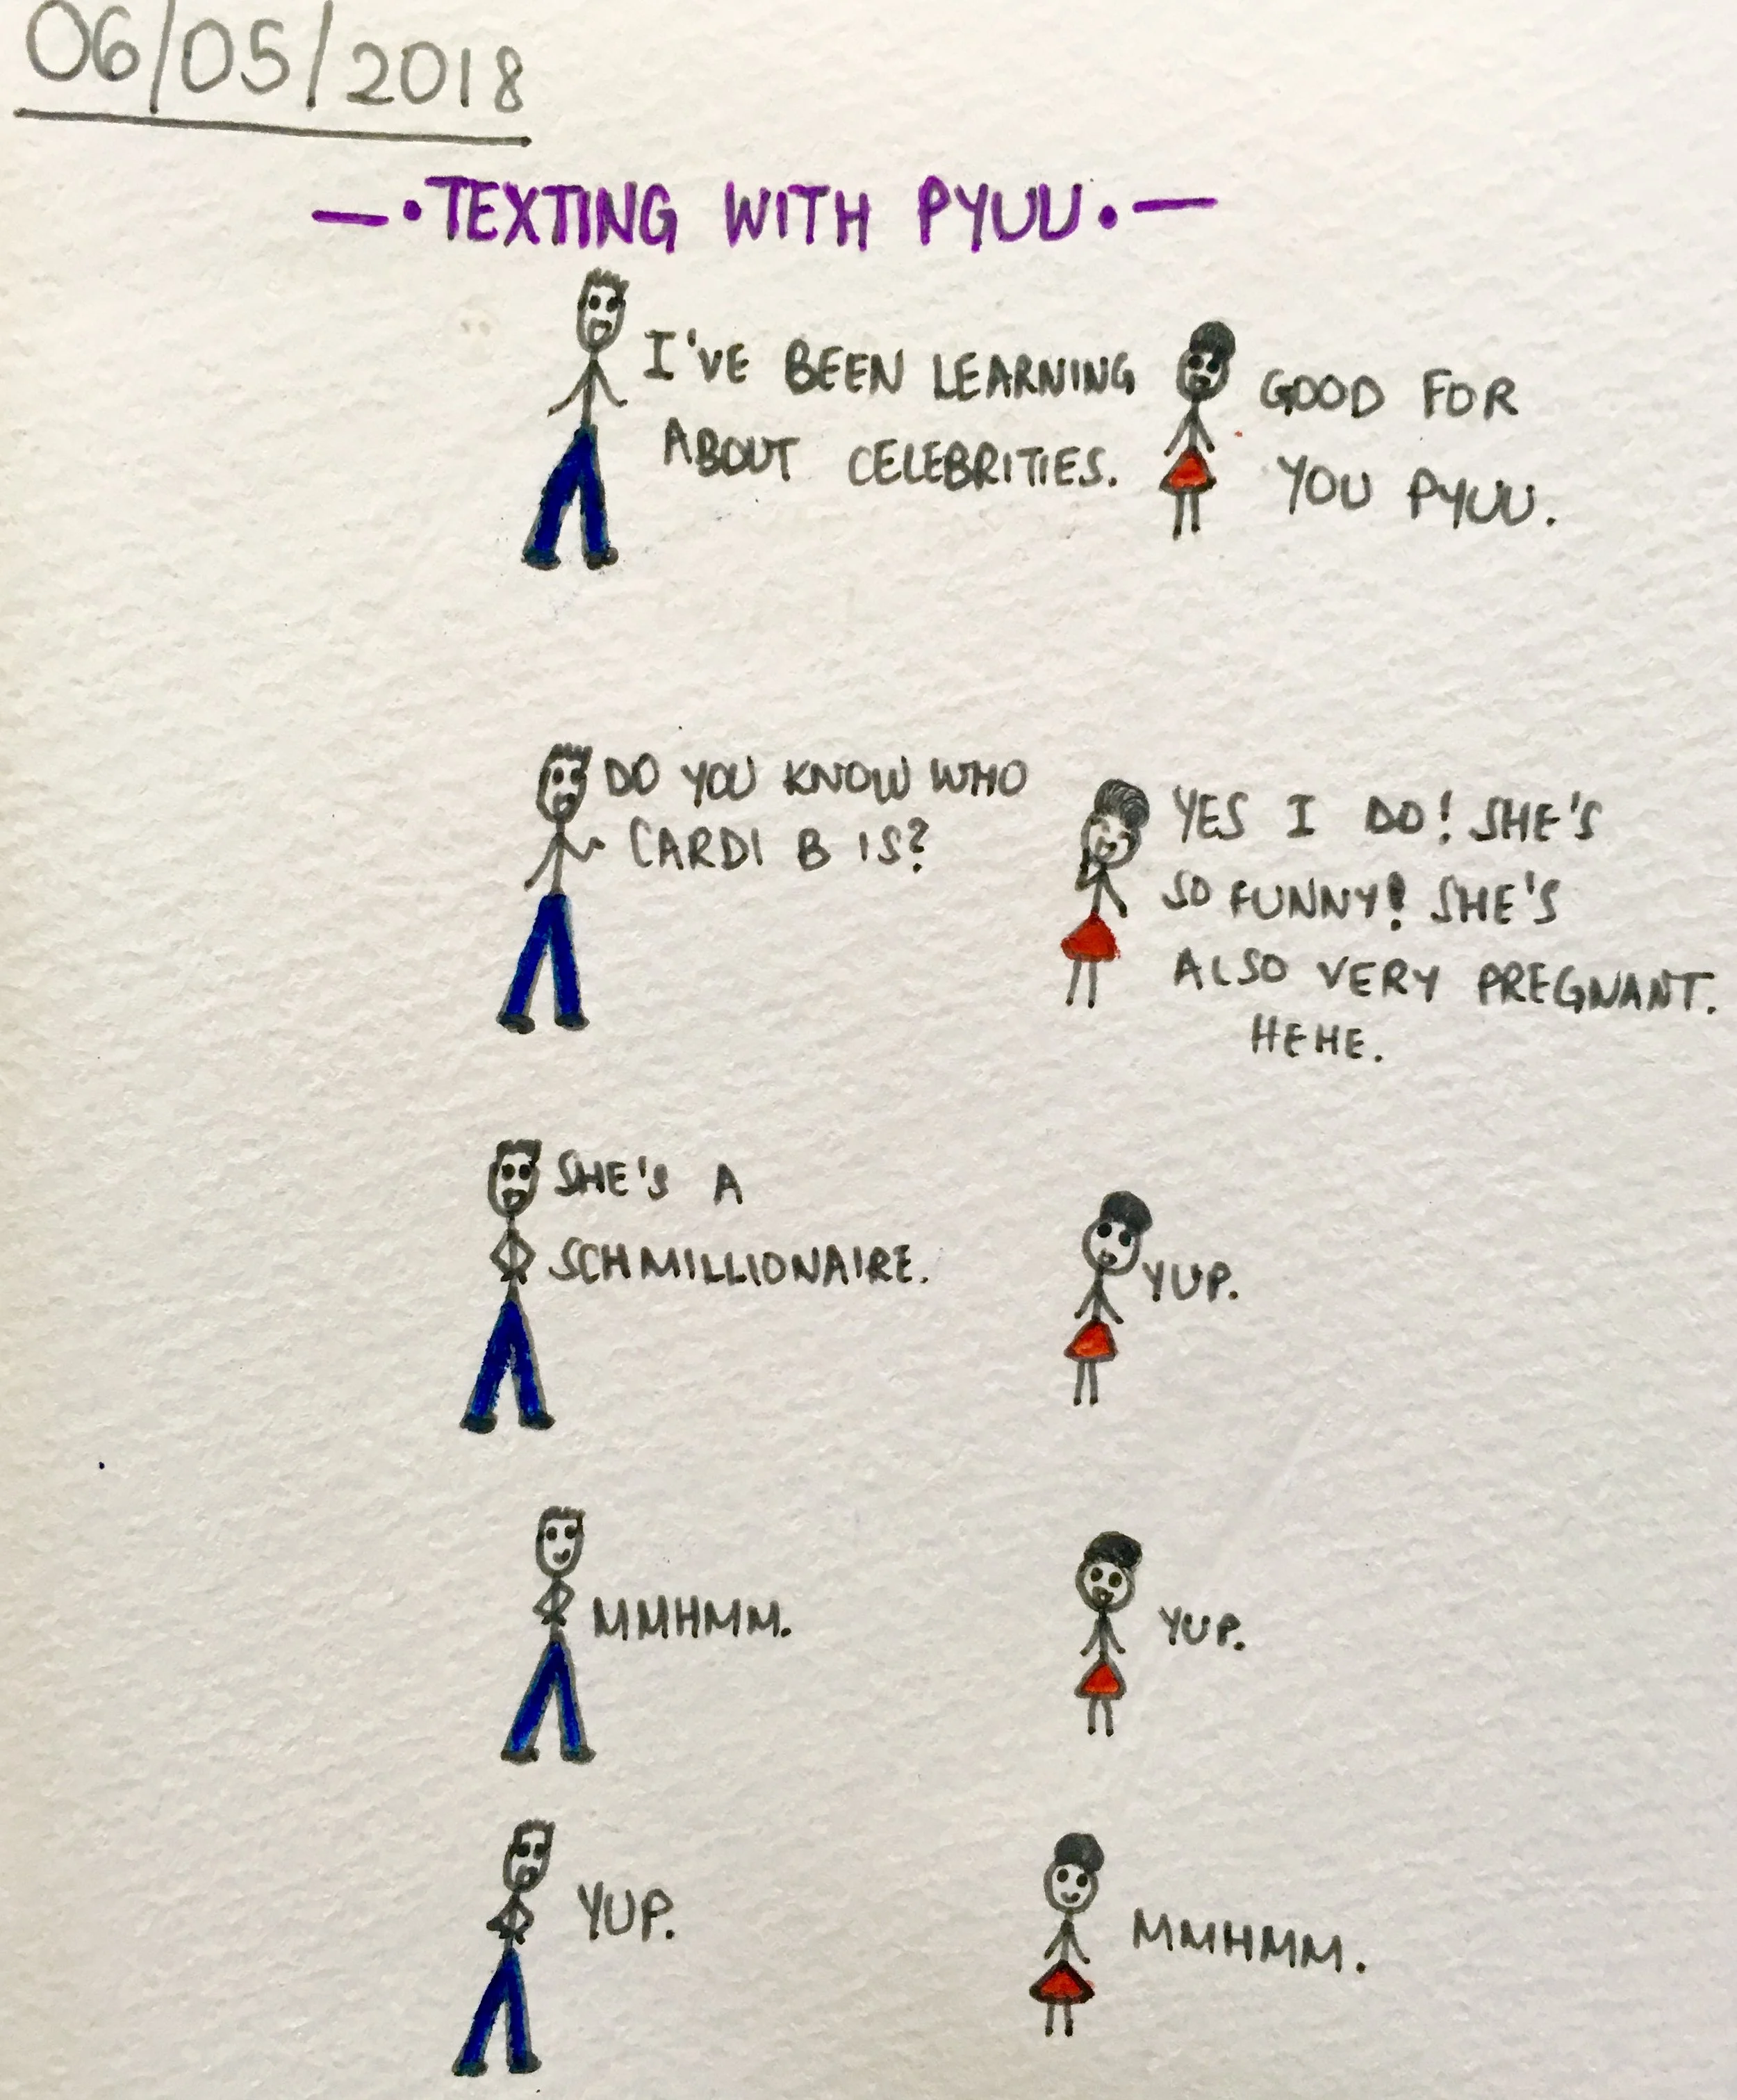 06/05/2018
—•TEXTING WITH PYUU•—
I'VE BEEN LEARNING
ABOUT CELEBRITIES.
GOOD FOR
YOU PYUU.
DO YOU KNOW WHO
CARDI B IS?
YES I DO! SHE'S
SO FUNNY! SHE'S
ALSO VERY PREGNANT.
HEHE.
SHE'S A
SCHMILLIONAIRE.
YUP.
MMHMM.
YUP.
YUP.
MMHMM.